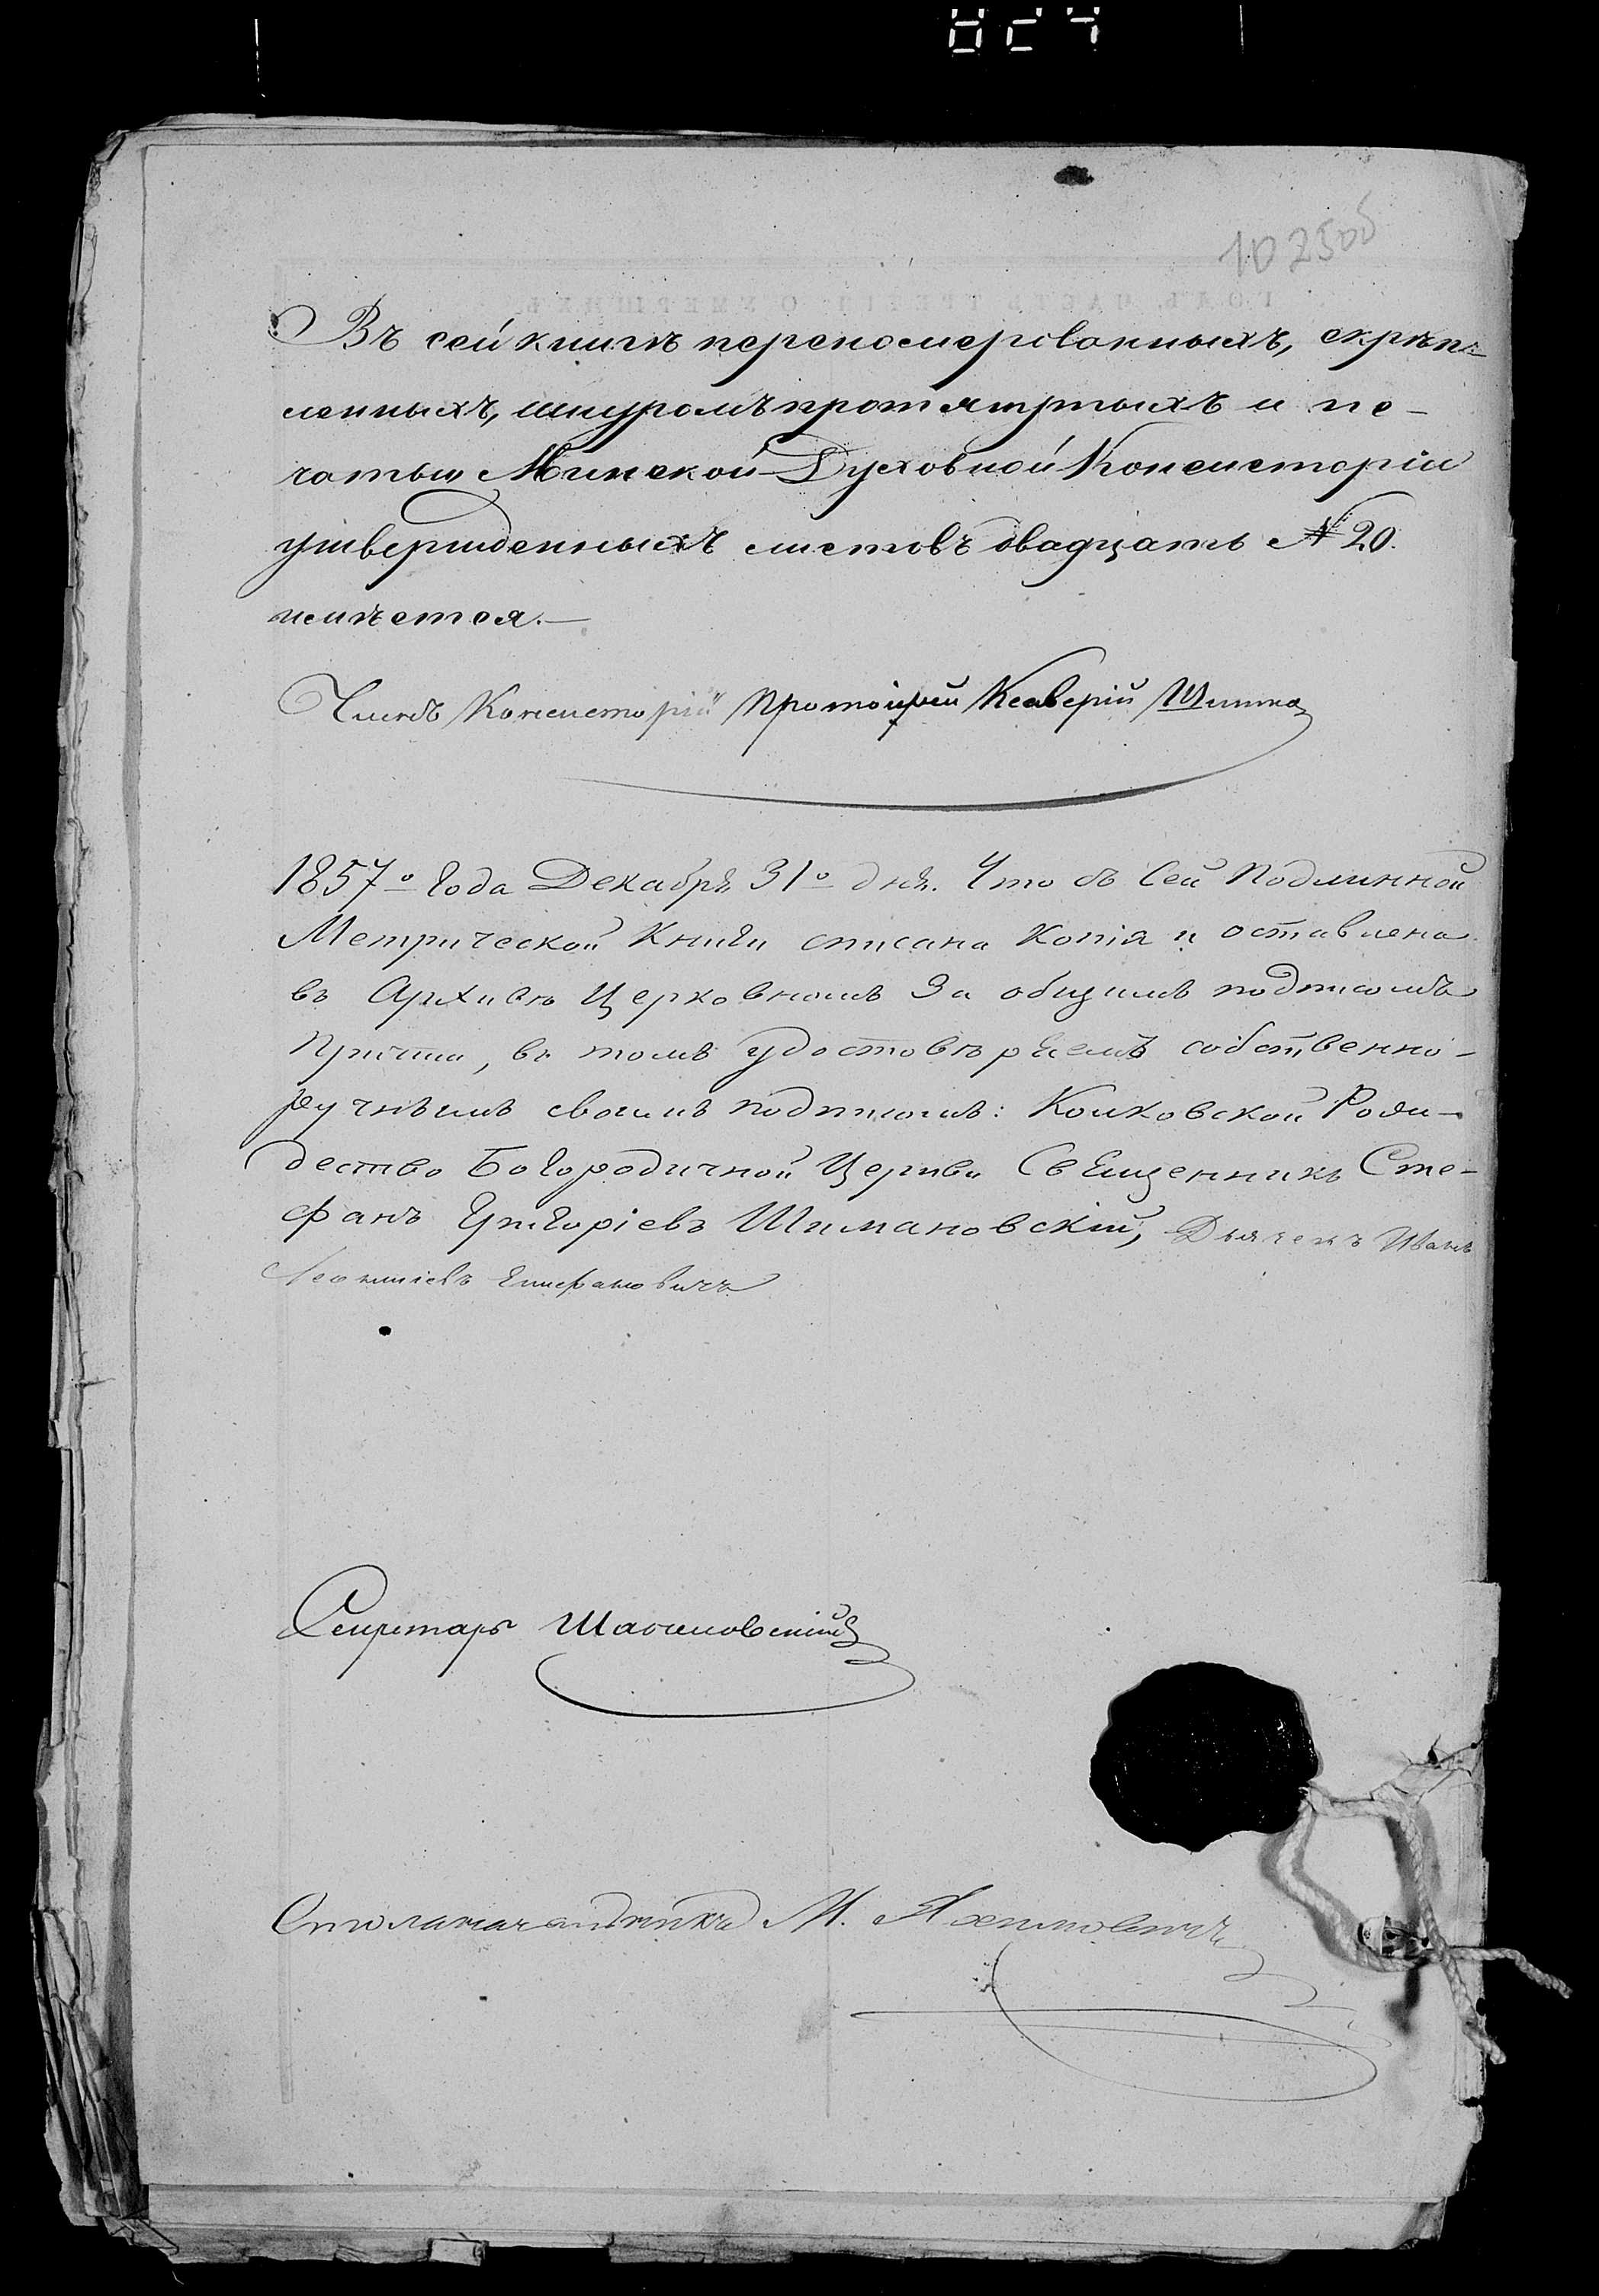 1025об
Въ сей книгѣ перенумерованныхъ, скрѣп-
ленныхъ, шнуромъ протянутыхъ и пе-
чатью Минской Духовной Консисторіи
утвержденныхъ листовъ двадцать № 20.
имѣется.—
Членъ Консисторіи Протоіерей Ксаверій
1857го Года Декабря 31го дня. Что съ Сей Подлинной
Метрической Книги списана Копія и оставлена
въ Архивѣ Церковномъ За общимъ подписомъ
Причта, въ томъ удостовѣряемъ собственно-
ручнымъ своимъ подписомъ: Колковской Рож-
дество Богородичной Церкви Священникъ Сте-
фанъ Григоріевъ Шимановскій, Дьячекъ Иванъ
Леонтіевъ Епифановичъ
Секретарь
Столоначальникъ М.